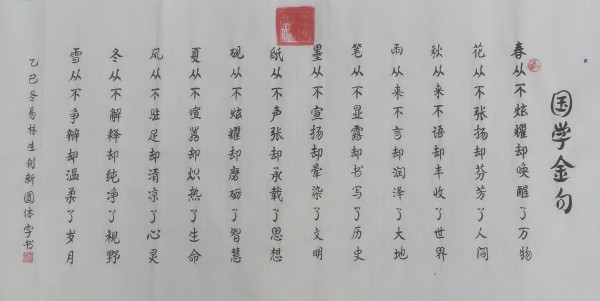 国学金句
春从不炫耀却唤醒了万物
花从不张扬却芬芳了人间
秋从来不语却丰收了世界
雨从来不言却润泽了大地
笔从不显露却书写了历史
墨从不宣扬却晕染了文明
纸从不声张却承载了思想
砚从不炫耀却磨砺了智慧
夏从不喧嚣却炽热了生命
风从不驻足却清凉了心灵
冬从不解释却纯净了视野
雪从不争辩却温柔了岁月
乙巳冬易林生创新圆体字书